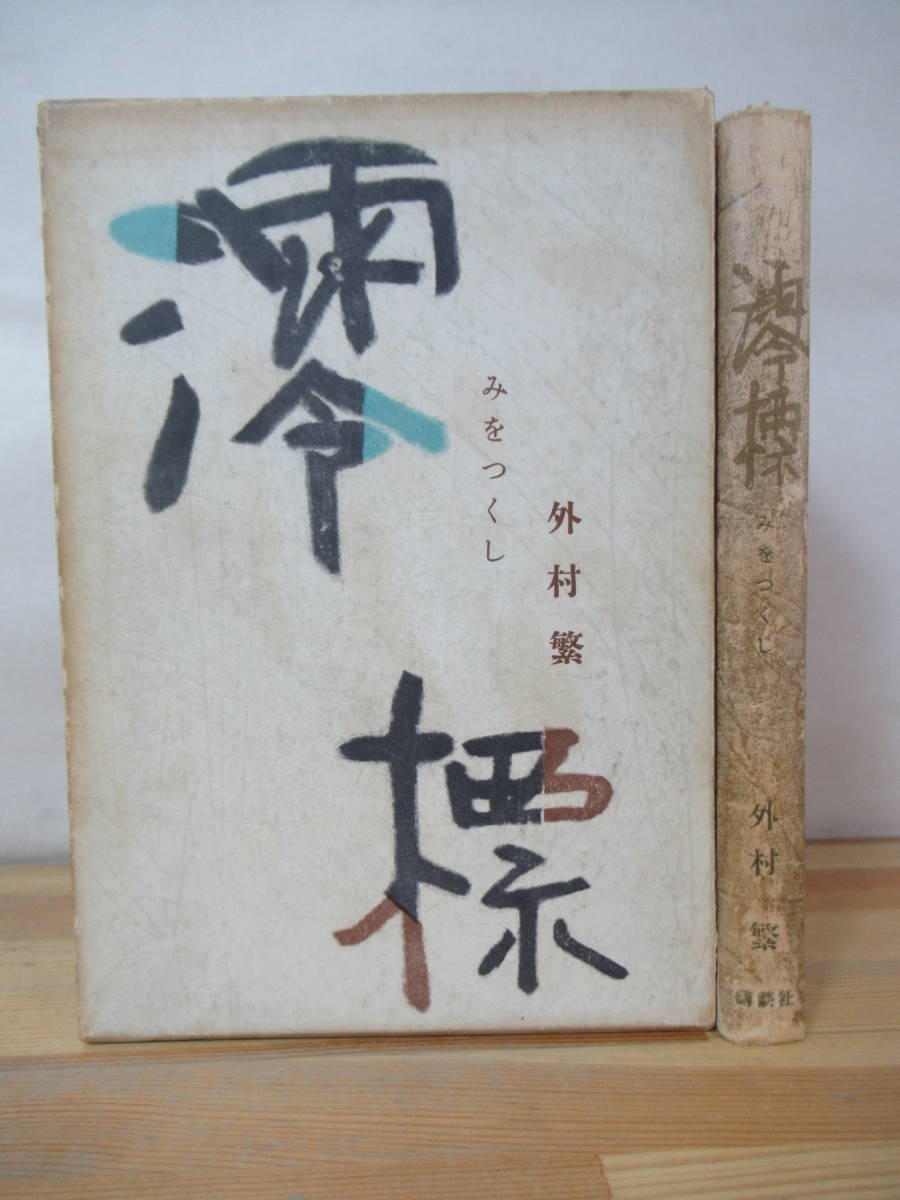 澪標
みをつくし
外村繁
澪標
みをつくし
外村繁
講談社